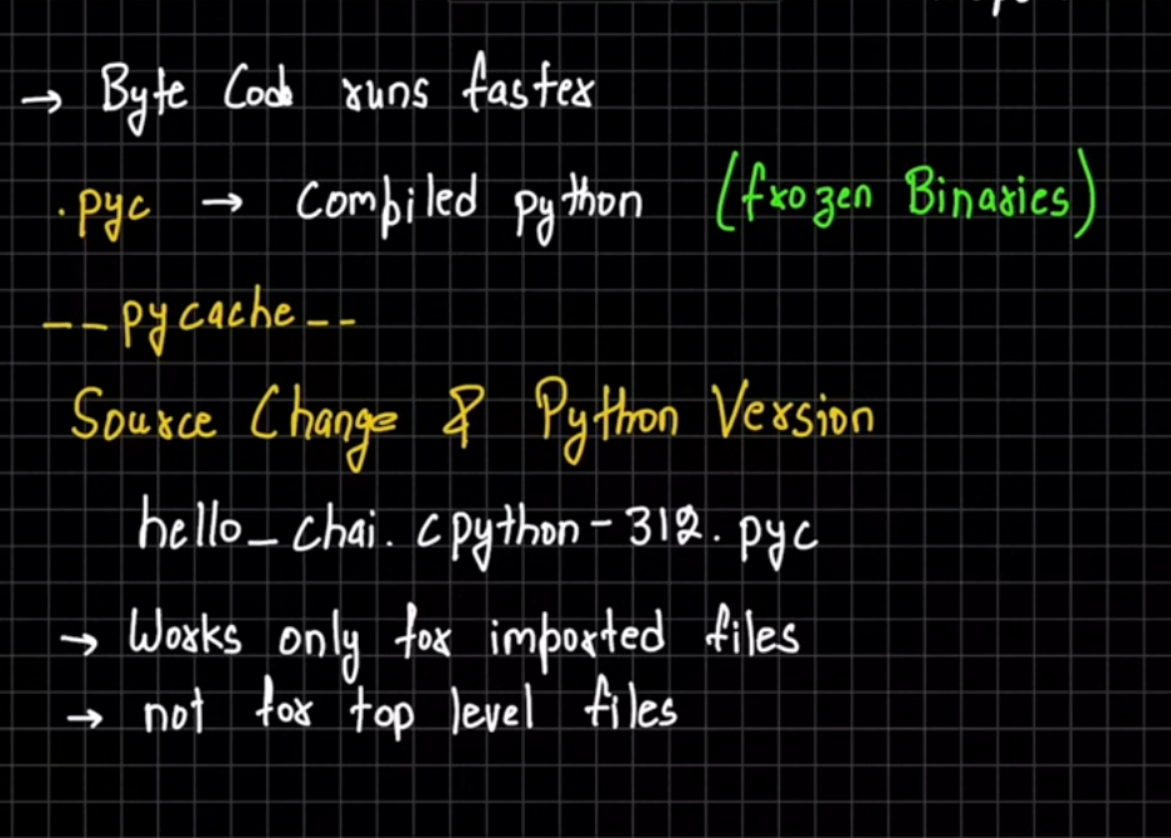 → Byte Code runs faster
.pyc → Compiled python (frozen Binaries)
--pycache--
Source Change & Python Version
hello_chai.cpython-312.pyc
→ Works only for imported files
→ not for top level files